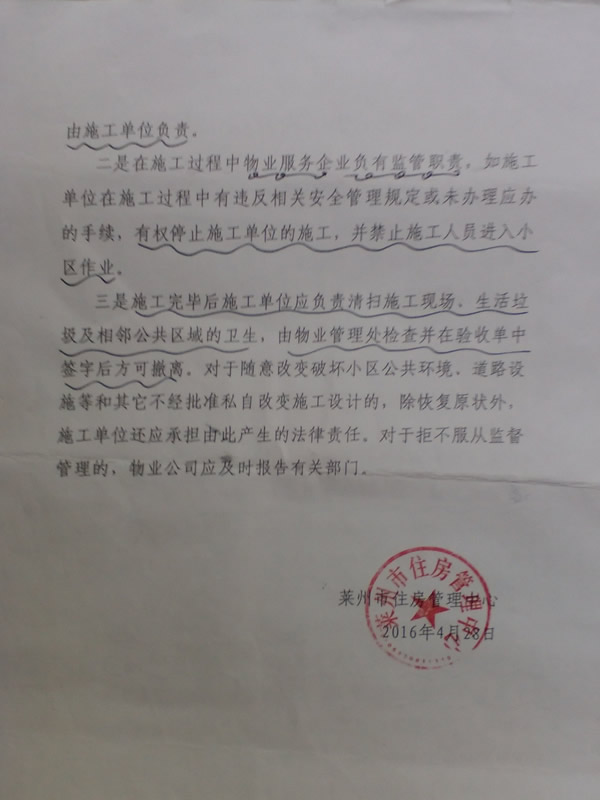 由施工单位负责。
二是在施工过程中物业服务企业负有监管职责，如施工
单位在施工过程中有违反相关安全管理规定或未办理应办
的手续，有权停止施工单位的施工，并禁止施工人员进入小
区作业。
三是施工完毕后施工单位应负责清扫施工现场、生活垃
圾及相邻公共区域的卫生，由物业管理处检查并在验收单中
签字后方可撤离。对于随意改变破坏小区公共环境、道路设
施等和其它不经批准私自改变施工设计的，除恢复原状外，
施工单位还应承担由此产生的法律责任。对于拒不服从监督
管理的，物业公司应及时报告有关部门。
莱州市住房管理中心
2016年4月28日
莱州市住房管理中心